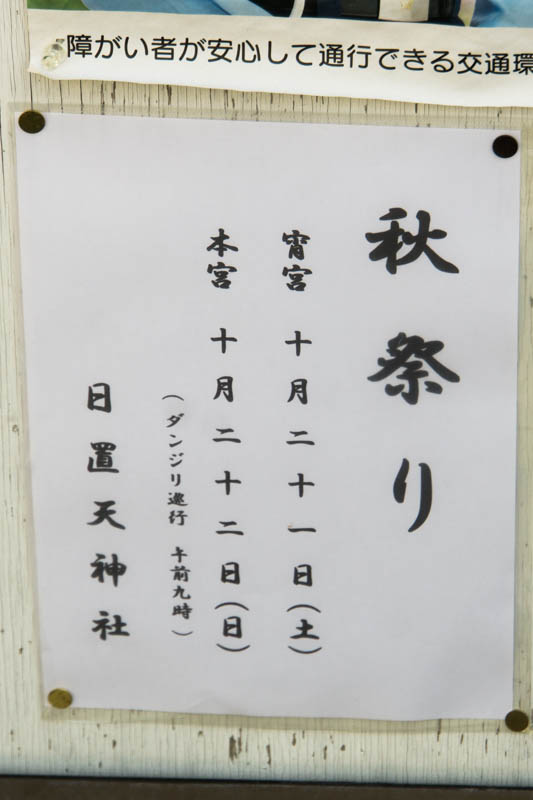 障がい者が安心して通行できる交通環
秋祭り
宵宮 十月二十一日(土)
本宮 十月二十二日(日)
(ダンジリ巡行 午前九時)
日置天神社